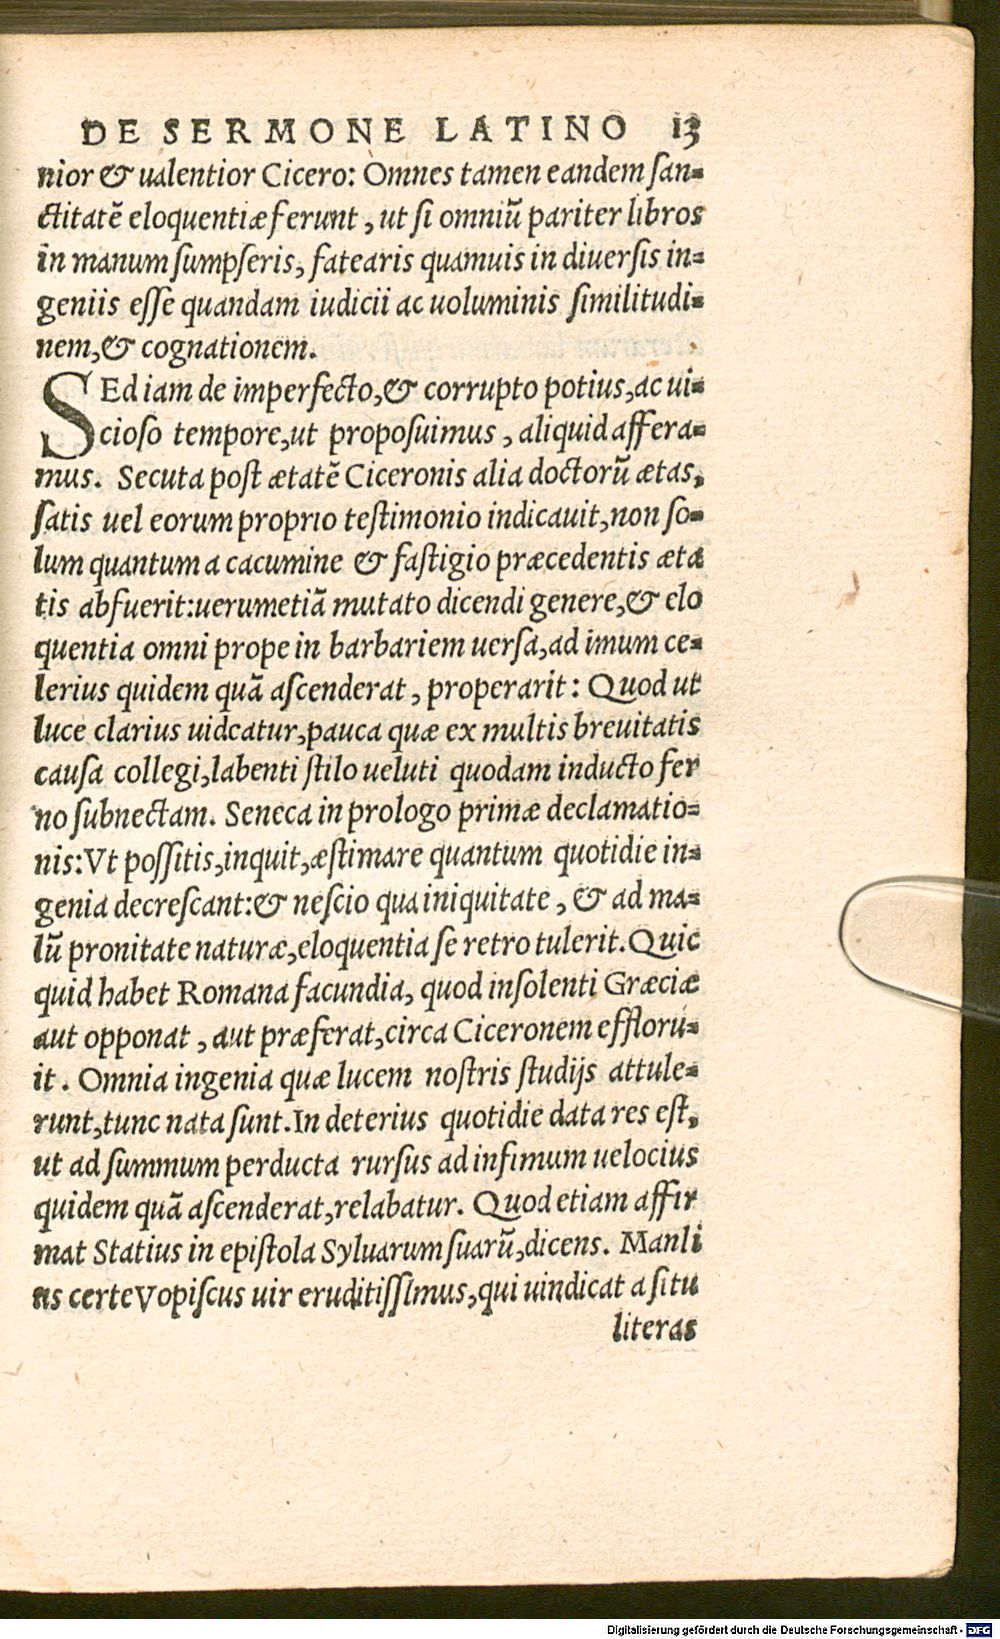 DE SERMONE LATINO 13
nior & ualentior Cicero: Omnes tamen eandem san-
ctitatē eloquentiæ ferunt, ut si omniū pariter libros
in manum sumpseris, fatearis quamuis in diuersis in-
geniis esse quandam iudicii ac uoluminis similitudi-
nem, & cognationem.
SEd iam de imperfecto, & corrupto potius, ac ui-
cioso tempore, ut proposuimus, aliquid affera-
mus. Secuta post ætatē Ciceronis alia doctorū ætas,
satis uel eorum proprio testimonio indicauit, non so-
lum quantum a cacumine & fastigio præcedentis æta
tis abfuerit: uerumetiā mutato dicendi genere, & elo
quentia omni prope in barbariem uersa, ad imum ce-
lerius quidem quā ascenderat, properarit: Quod ut
luce clarius uideatur, pauca quæ ex multis breuitatis
causa collegi, labenti stilo ueluti quodam inducto fer
no subnectam. Seneca in prologo primæ declamatio-
nis: Vt possitis, inquit, æstimare quantum quotidie in-
genia decrescant: & nescio qua iniquitate, & ad ma-
lū pronitate naturæ, eloquentia se retro tulerit. Quic
quid habet Romana facundia, quod insolenti Græciæ
aut opponat, aut præferat, circa Ciceronem effloru-
it. Omnia ingenia quæ lucem nostris studijs attule-
runt, tunc nata sunt. In deterius quotidie data res est,
ut ad summum perducta rursus ad infimum uelocius
quidem quā ascenderat, relabatur. Quod etiam affir
mat Statius in epistola Syluarum suarū, dicens. Manli
us certe Vopiscus uir eruditissimus, qui uindicat a situ
literas
Digitalisierung gefördert durch die Deutsche Forschungsgemeinschaft - DFG